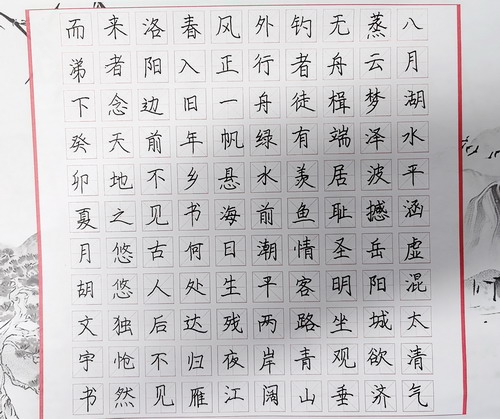 八月湖水平涵虚混太清气
蒸云梦泽波撼岳阳城欲济
无舟楫端居耻圣明坐观垂
钓者徒有羡鱼情客路青山
外行舟绿水前潮平两岸阔
风正一帆悬海日生残夜江
春入旧年乡书何处达归雁
洛阳边前不见古人后不见
来者念天地之悠悠独怆然
而涕下癸卯夏月胡文宇书